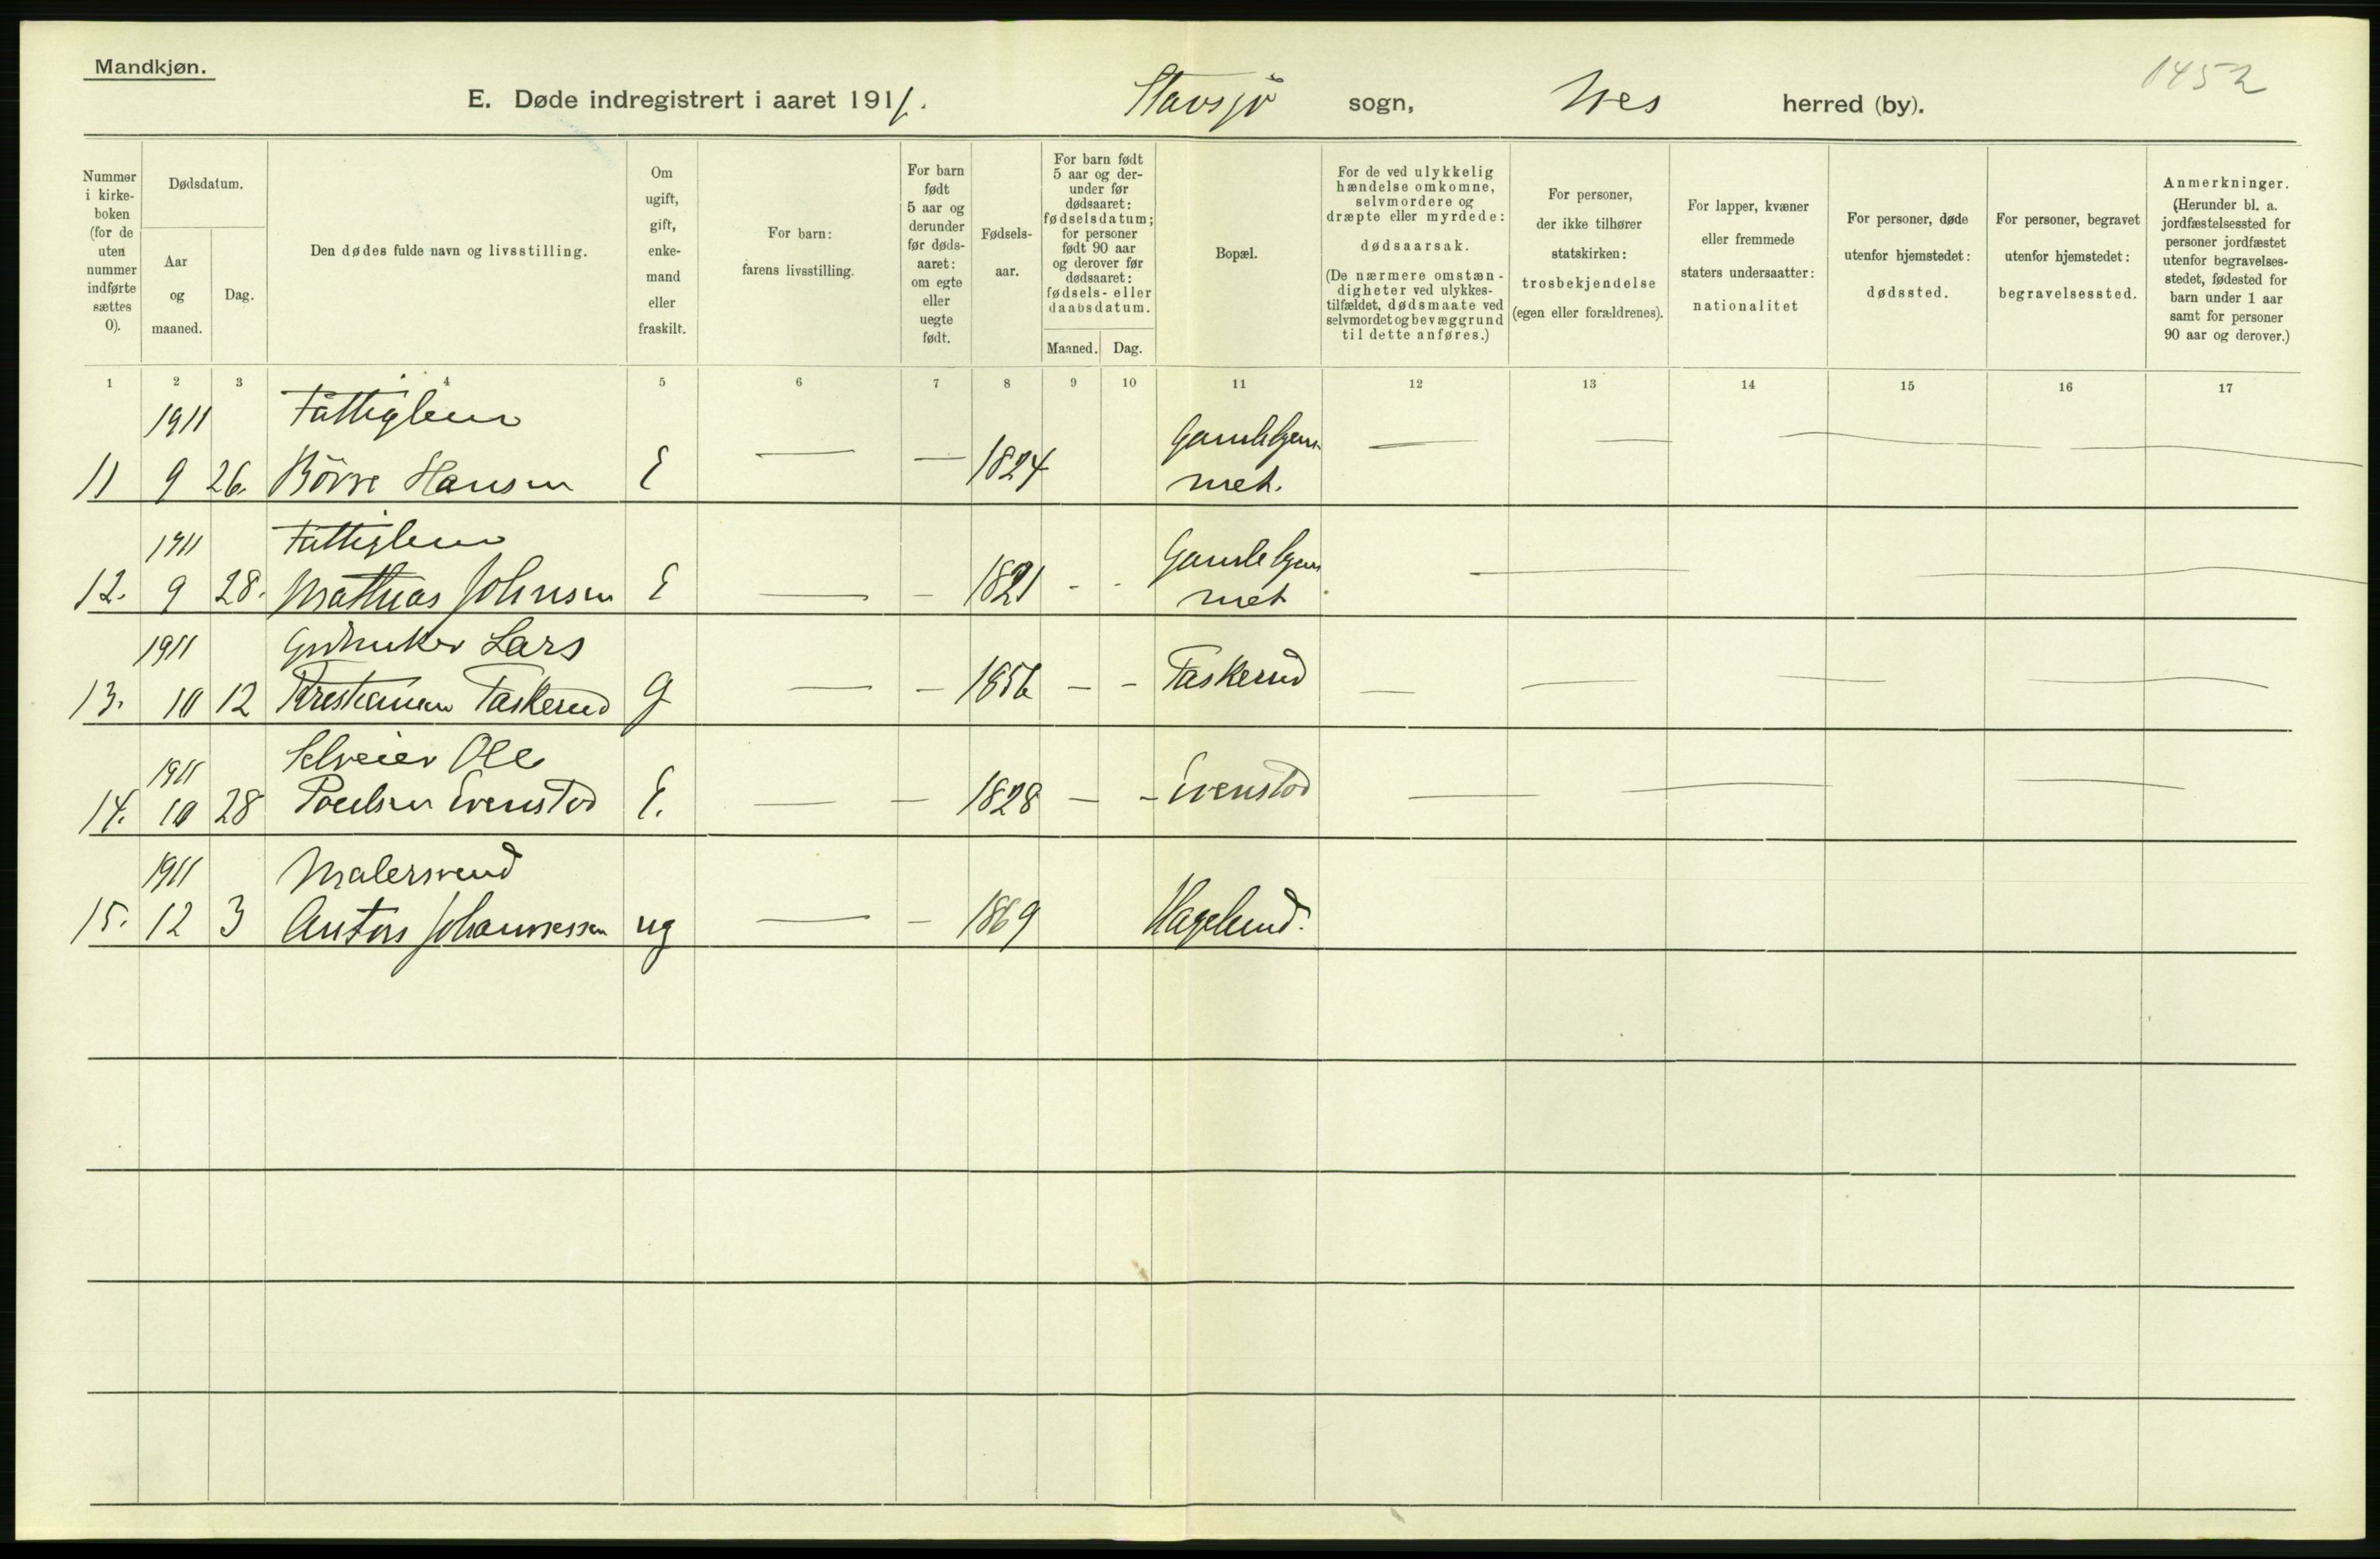 Mandkjøn.
1452
E. Døde indregistrert i aaret 1911. Stavsjø sogn, Nes herred (by).
Nummer i kirke-boken (for de uten nummer indførte sættes 0).
Dødsdatum.
Aar og maaned.
Dag.
Den dødes fulde navn og livsstilling.
Om ugift, gift, enke-mand eller fraskilt.
For barn: farens livsstilling.
For barn født 5 aar og derunder før døds-aaret: om egte eller uegte født.
Fødsels-aar.
For barn født 5 aar og der-under før dødsaaret: fødselsdatum; for personer født 90 aar og derover før dødsaaret: fødsels- eller daabsdatum.
Maaned. Dag.
Bopæl.
For de ved ulykkelig hændelse omkomne, selvmordere og dræpte eller myrdede: dødsaarsak. (De nærmere omstæn-digheter ved ulykkes-tilfældet, dødsmaate ved selvmordet og bevæggrund til dette anføres.)
For personer, der ikke tilhører statskirken: trosbekjendelse (egen eller forældrenes).
For lapper, kvæner eller fremmede staters undersaatter: nationalitet
For personer, døde utenfor hjemstedet: dødssted.
For personer, begravet utenfor hjemstedet: begravelsessted.
Anmerkninger. (Herunder bl. a. jordfæstelsessted for personer jordfæstet utenfor begravelses-stedet, fødested for barn under 1 aar samt for personer 90 aar og derover.)
1 2 3 4 5 6 7 8 9 10 11 12 13 14 15 16 17
1911 Fattiglem
11 9 26. Börre Hansen E — — 1824 — — — —
1911 Fattiglem
12. 9 28. Mathias Johnsen E — — 1821 - - — —
1911 Lars
13. 10 12 Kristiansen Taskerud G — — 1856 — — Taskerud — — — — —
1911 Selveier Ole
14. 10 28 Poulsen Evenstad E. — — 1828 — — Evenstad — — — —
1911 Malersvend
15. 12 3 Anton Johannessen ug — — 1869 Hagelund.